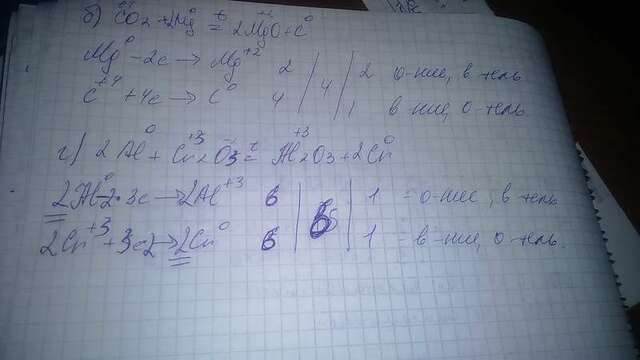 б) C⁺⁴O₂ + 2Mg⁰ =ᵗ 2Mg⁺²O + C⁰
Mg⁰ - 2e → Mg⁺² 2 | 4 | 2 о-ние, в-тель
C⁺⁴ + 4e → C⁰ 4 | | 1 в-ние, о-тель
г) 2Al⁰ + Cr⁺³₂O₃ =ᵗ Al⁺³₂O₃ + 2Cr⁰
2Al⁰ - 2·3e → 2Al⁺³ 6 | 6 | 1 - о-ние, в-тель
2Cr⁺³ + 3e2 → 2Cr⁰ 6 | | 1 - в-ние, о-тель.